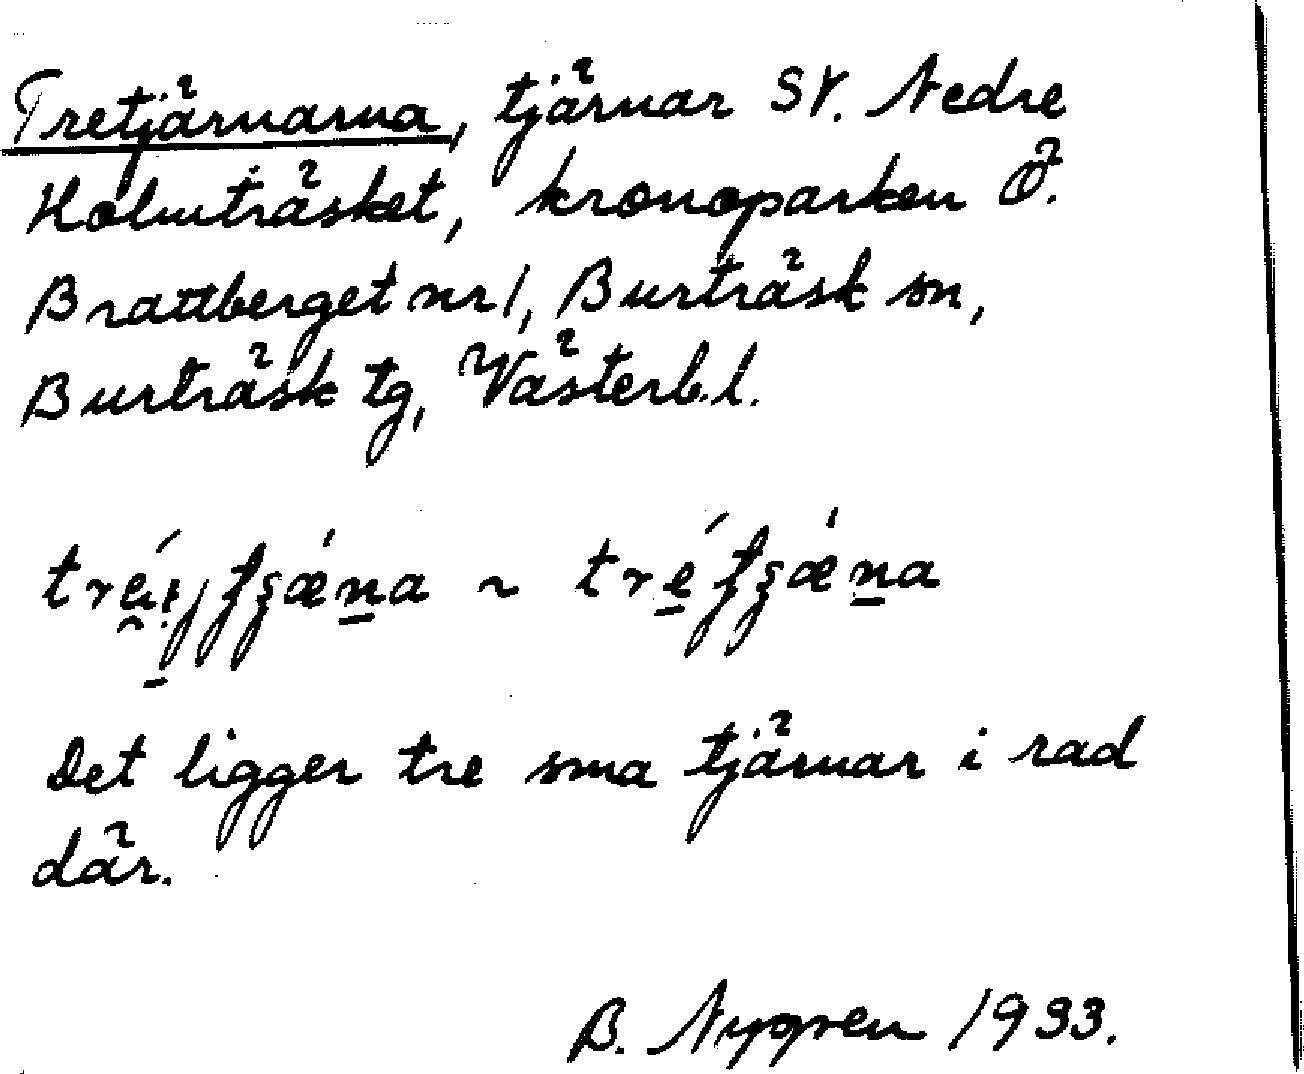 Tretjärnarna, tjärnar SV. Nedre
Holmträsket, kronoparken Ö.
Brattberget nr 1, Burträsk sn,
Burträsk tg, Västerb.l.
Det ligger tre sma tjärnar i rad
där.
B. Nygren 1933.